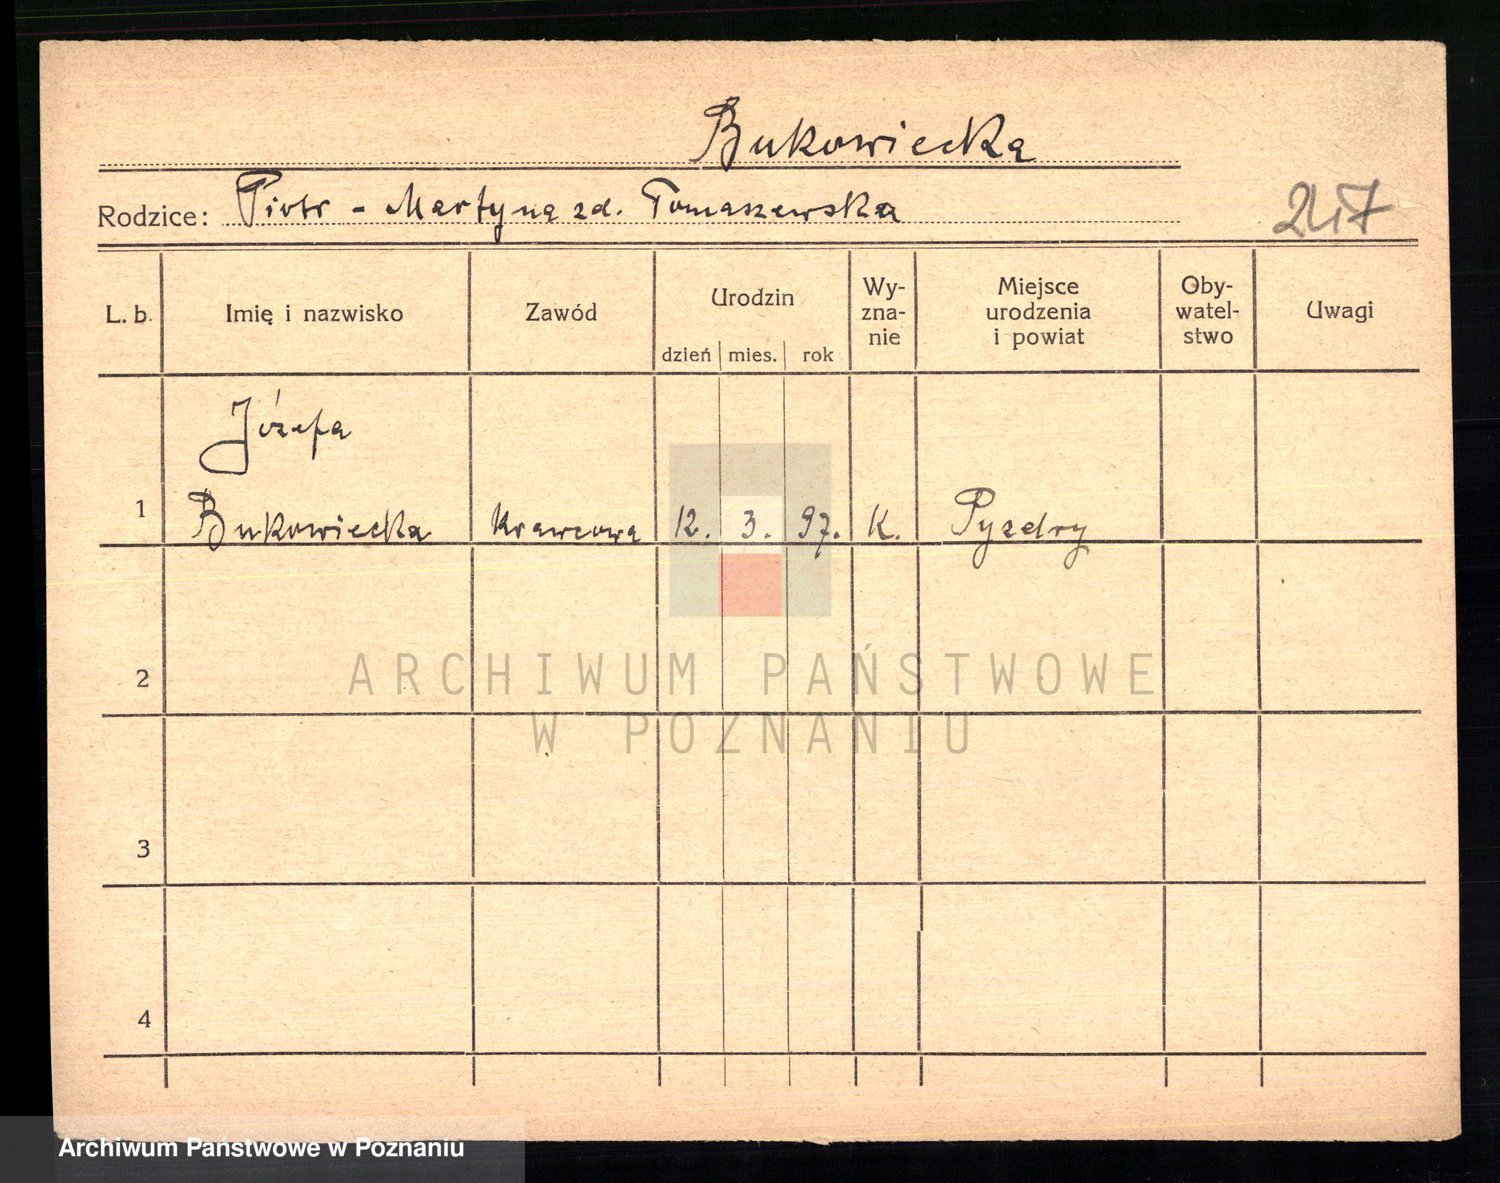 Bukowiecka
Rodzice: Piotr - Martyna zd. Tomaszewska
L. b.
Imię i nazwisko
Zawód
Urodzin
dzień
mies.
rok
Wy-
zna-
nie
Miejsce
urodzenia
i powiat
Oby-
watel-
stwo
Uwagi
Józefa
1 Bukowiecka Krawcowa 12. 3. 97. K. Pyzdry
2
ARCHIWUM PAŃSTWOWE
W POZNANIU
3
4
Archiwum Państwowe w Poznaniu